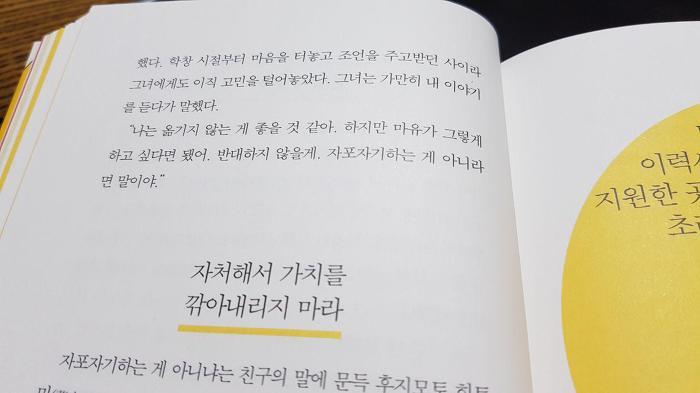 했다. 학창 시절부터 마음을 터놓고 조언을 주고받던 사이라
그녀에게도 이직 고민을 털어놓았다. 그녀는 가만히 내 이야기
를 듣다가 말했다.
“나는 옮기지 않는 게 좋을 것 같아. 하지만 마유가 그렇게
하고 싶다면 됐어. 반대하지 않을게. 자포자기하는 게 아니라
면 말이야.”
자처해서 가치를
깎아내리지 마라
자포자기하는 게 아니냐는 친구의 말에 문득 후지모토
이력서
지원한